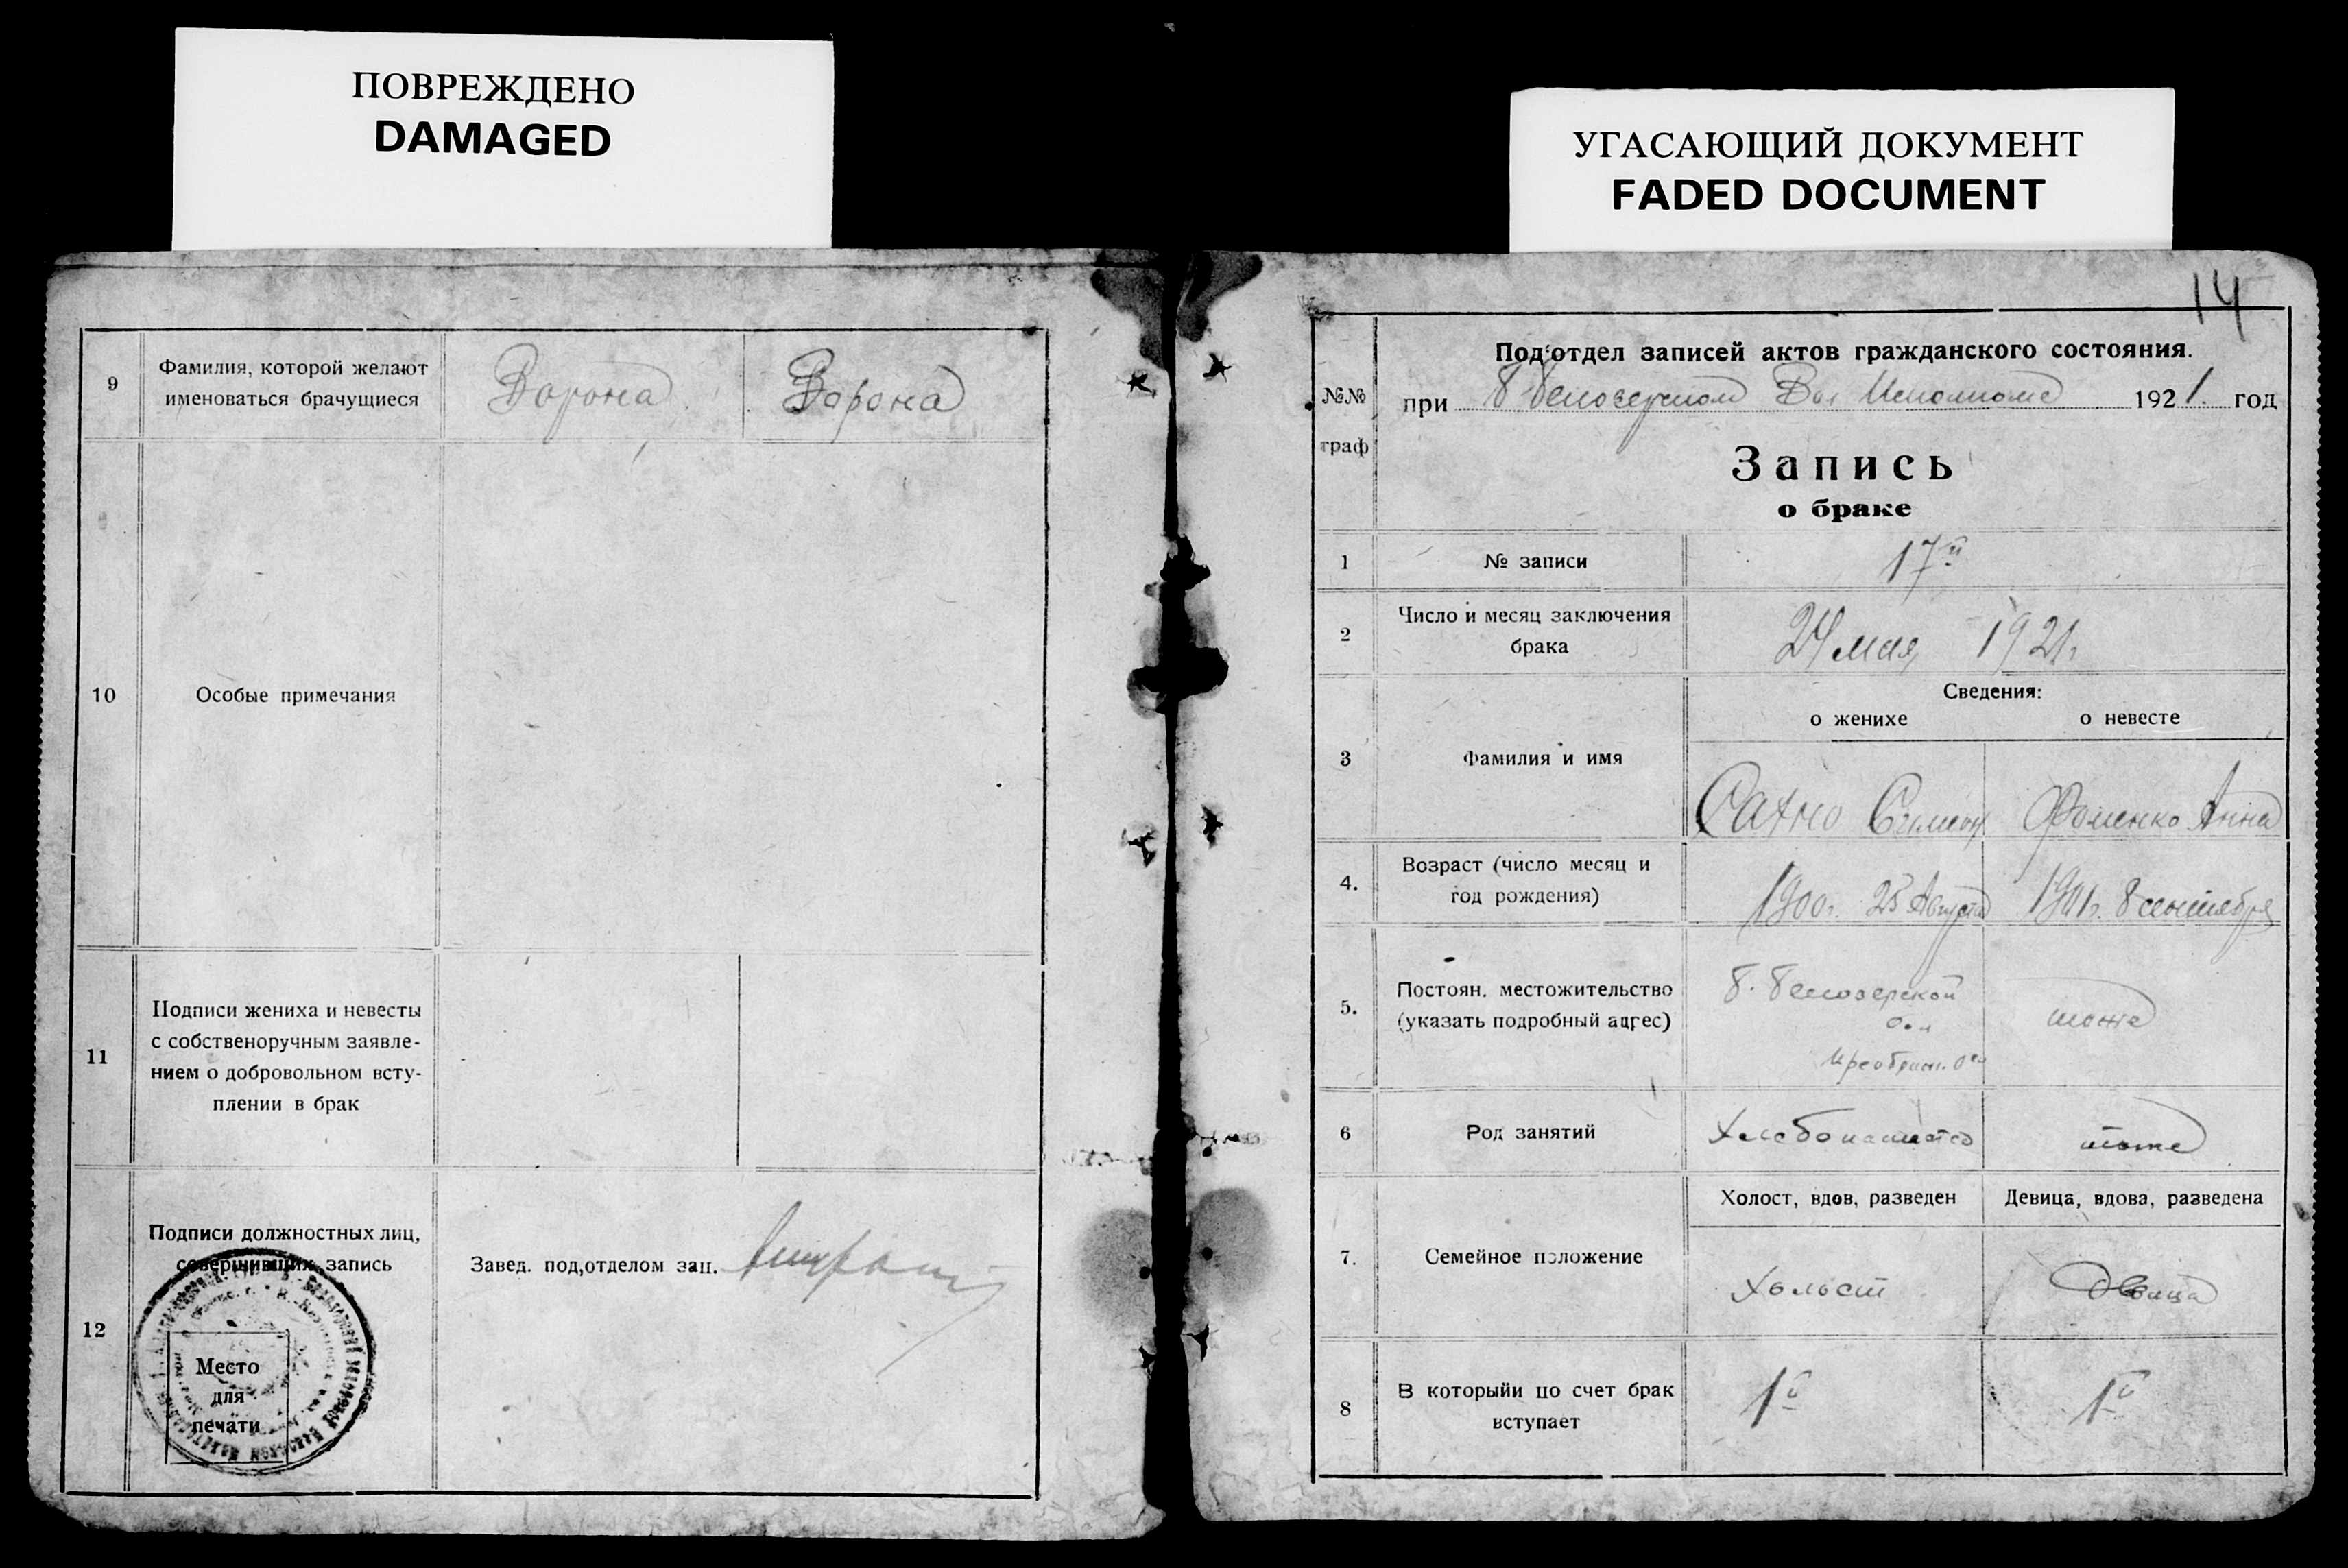 ПОВРЕЖДЕНО
DAMAGED
УГАСАЮЩИЙ ДОКУМЕНТ
FADED DOCUMENT
9
Фамилия, которой желают
именоваться брачущиеся
Ворона
Ворона
10
Особые примечания
11
Подписи жениха и невесты
с собственоручным заявле-
нием о добровольном всту-
плении в брак
12
Подписи должностных лиц,
совершивших запись
Завед. под,отделом зап.
Место
для
печати
14
№№
граф
Под'отдел записей актов гражданского состояния.
при Б Белозерском Вол Исполкоме 1921 год
Запись
о браке
1
№ записи
17й
2
Число и месяц заключения
брака
24 мая 1921г
Сведения:
о женихе
о невесте
3
Фамилия и имя
Сахно Симеон
Фоменко Анна
4.
Возраст (число месяц и
год рождения)
1900г. 25 Августа
1901г. 8 сентября
5.
Постоян. местожительство
(указать подробный адрес)
Б. Белозерской
вол
тоже
6
Род занятий
Хлебопашество
тоже
7.
Семейное положение
Холост, вдов, разведен
Девица, вдова, разведена
Холост
Девица
8
В которыйи по счет брак
вступает
1й
1й